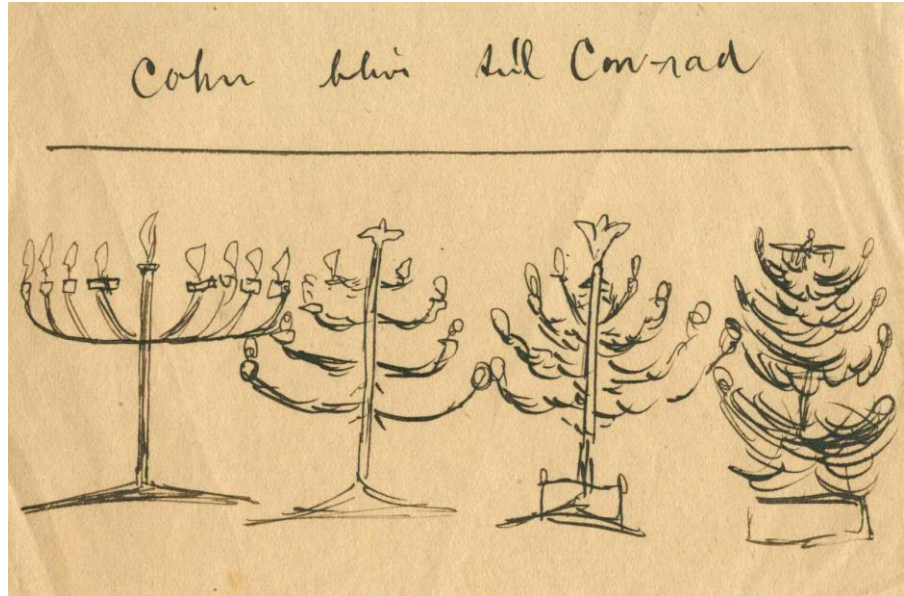 Cohn blir till Conrad